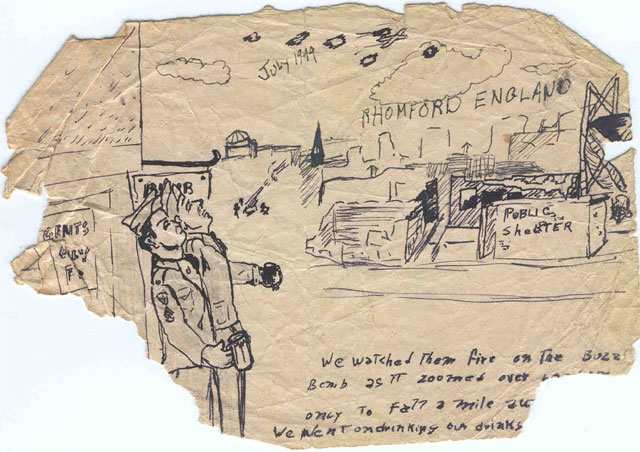 July 1944
RHOMFORD ENGLAND
GENTS
PUBLIC
SHeLTER
We watched Them fire on The Buzz
Bomb as iT zoomed over
only To Fall a mile
We WenT on drinking our drinks